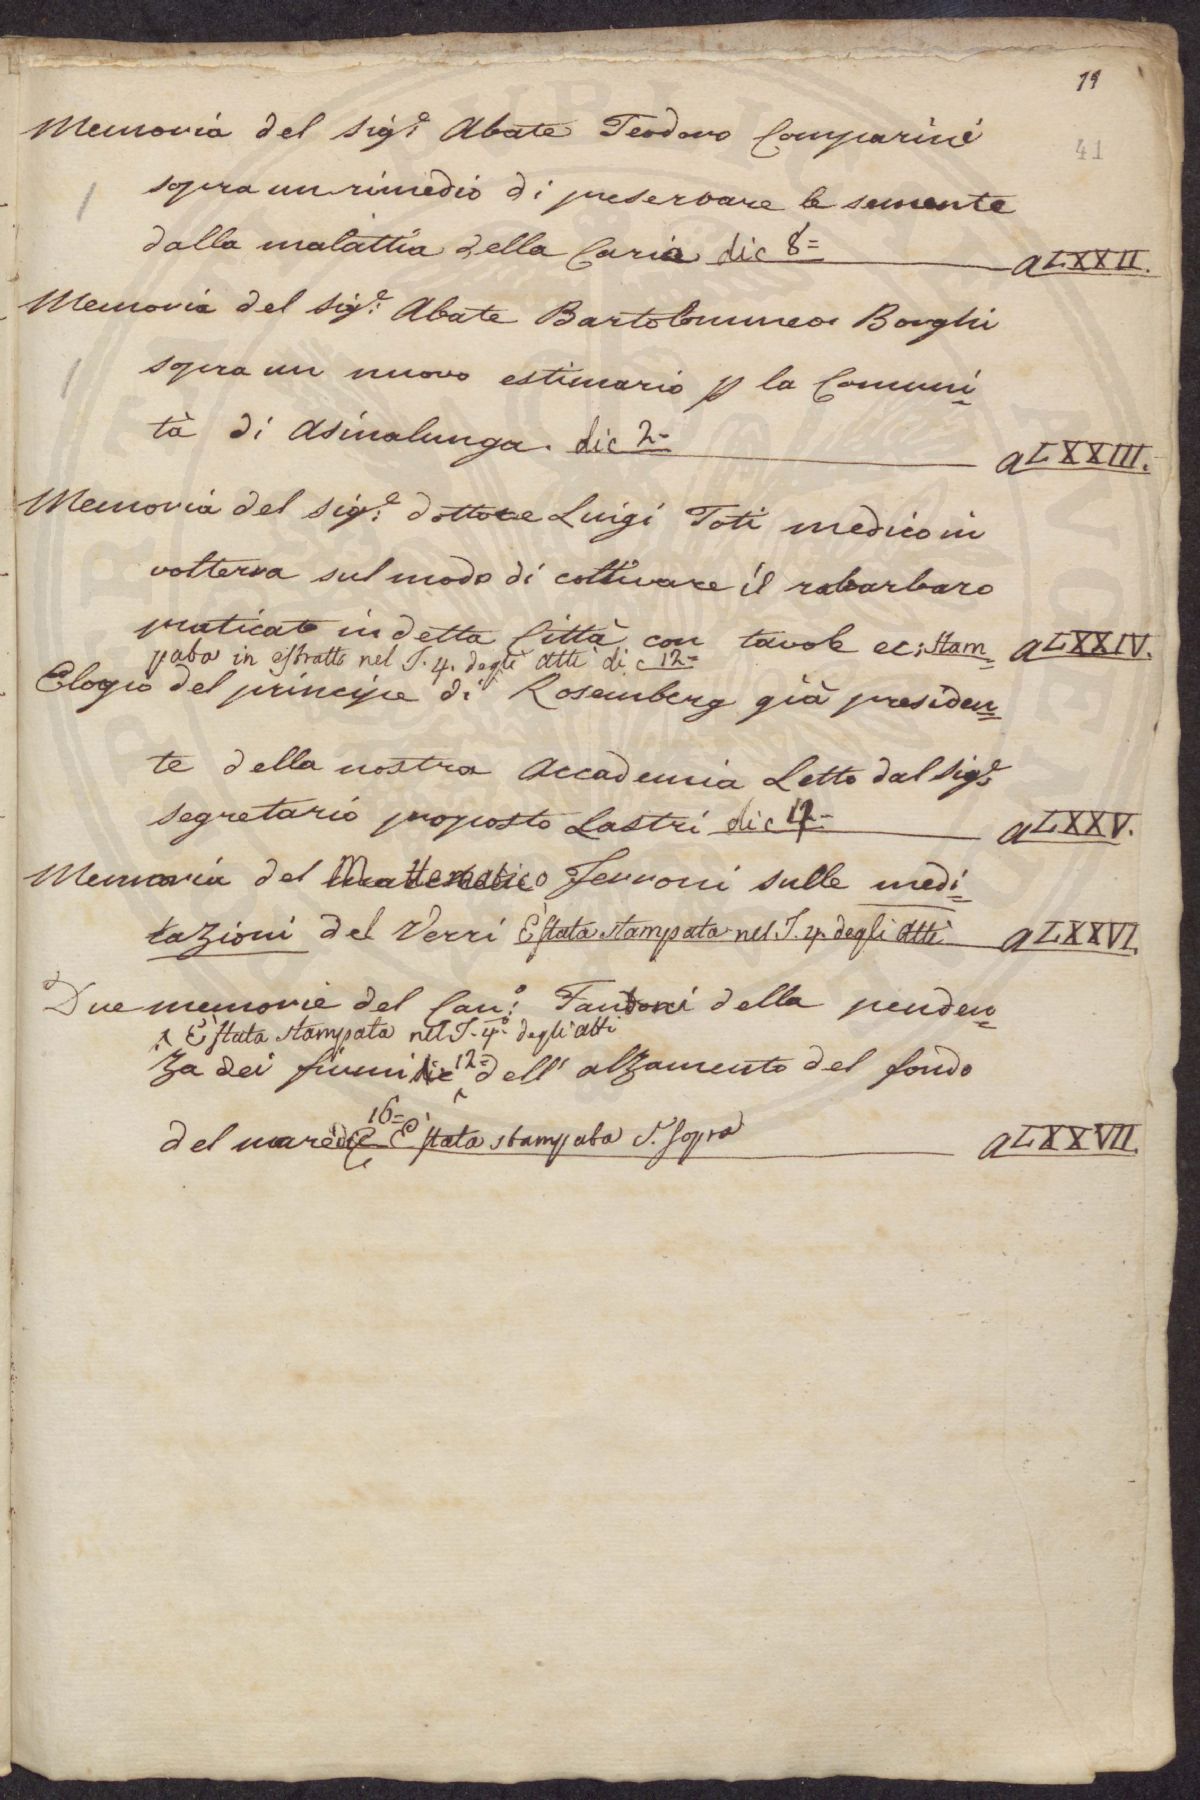 19
41
Memoria del sig.e Abate Teodoro Comparini
sopra un rimedio di preservare le semente
dalla malattia della Caria dic 8= a LXXII.
Memoria del Sig.e Abate Bartolommeo Borghi
sopra un nuovo estimario p la Comuni=
tà di Asinalunga. dic 2= a LXXIII.
Memoria del Sig.e dottore Luigi Toti medico in
volterra sul modo di coltivare il rabarbaro
praticato in detta Città con tavole ec: Stam= a LXXIV.
pata in estratto nel T. 4. degli Atti di c 12=
Elogio del principe di Rosemberg già presiden=
te della nostra Accademia Letto dal Sig.e
segretario proposto Lastri di c 4= a LXXV.
Memoria del Mattematico Ferroni sulle medi=
tazioni del Verri È stata stampata nel T. 4. degli Atti a LXXVI.
Due memorie del Can:o Fantoni della penden=
^ È stata stampata nel T. 4.o degli atti
za dei fiumi di c 12= ^ dell' alzamento del fondo
del mare di c 16= È stata stampata S. Sopra a LXXVII.